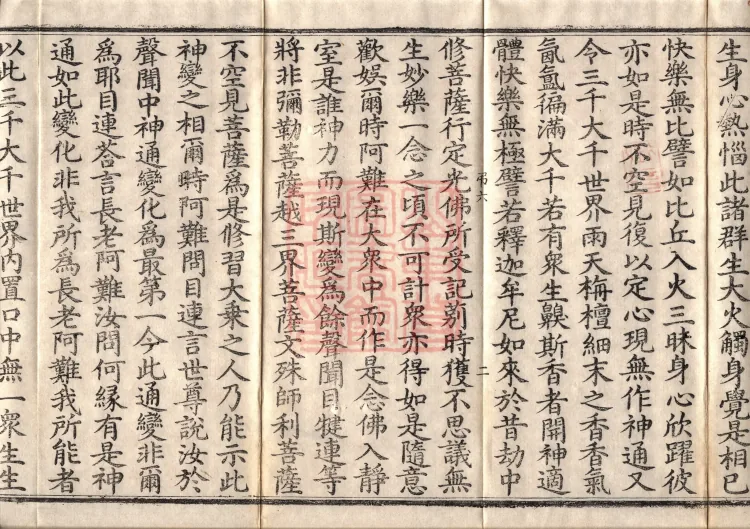 生身心熱惱此諸群生大火觸身覺是相已
快樂無比譬如比丘入火三昧身心欣躍彼
亦如是時不空見復以定心現無作神通又
令三千大千世界雨天栴檀細末之香香氣
氤氳徧滿大千若有衆生齅斯香者開神適
體快樂無極譬若釋迦牟尼如來於昔劫中
弔六 二
修菩薩行定光佛所受記別時獲不思議無
生妙樂一念之頃不可計衆亦得如是隨意
歡娛爾時阿難在大衆中而作是念佛入靜
室是誰神力而現斯變爲餘聲聞目犍連等
將非彌勒菩薩越三界菩薩文殊師利菩薩
不空見菩薩爲是修習大乗之人乃能示此
神變之相爾時阿難問目連言世尊說汝於
聲聞中神通變化爲最第一今此通變非爾
爲耶目連荅言長老阿難汝問何緣有是神
通如此變化非我所爲長老阿難我所能者
以此三千大千世界内置口中無一衆生生